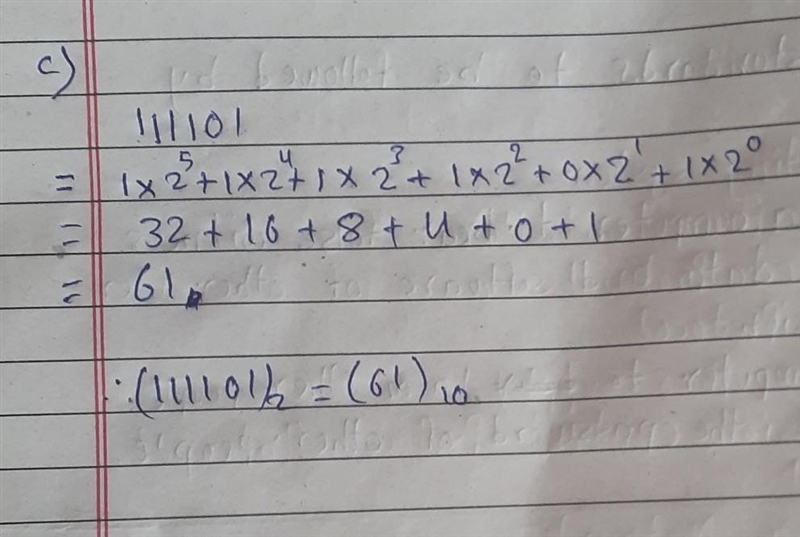 c)
111101
= 1×2⁵+1×2⁴+1×2³+1×2²+0×2¹+1×2⁰
= 32+16+8+4+0+1
= 61
∴(111101)₂ = (61)₁₀